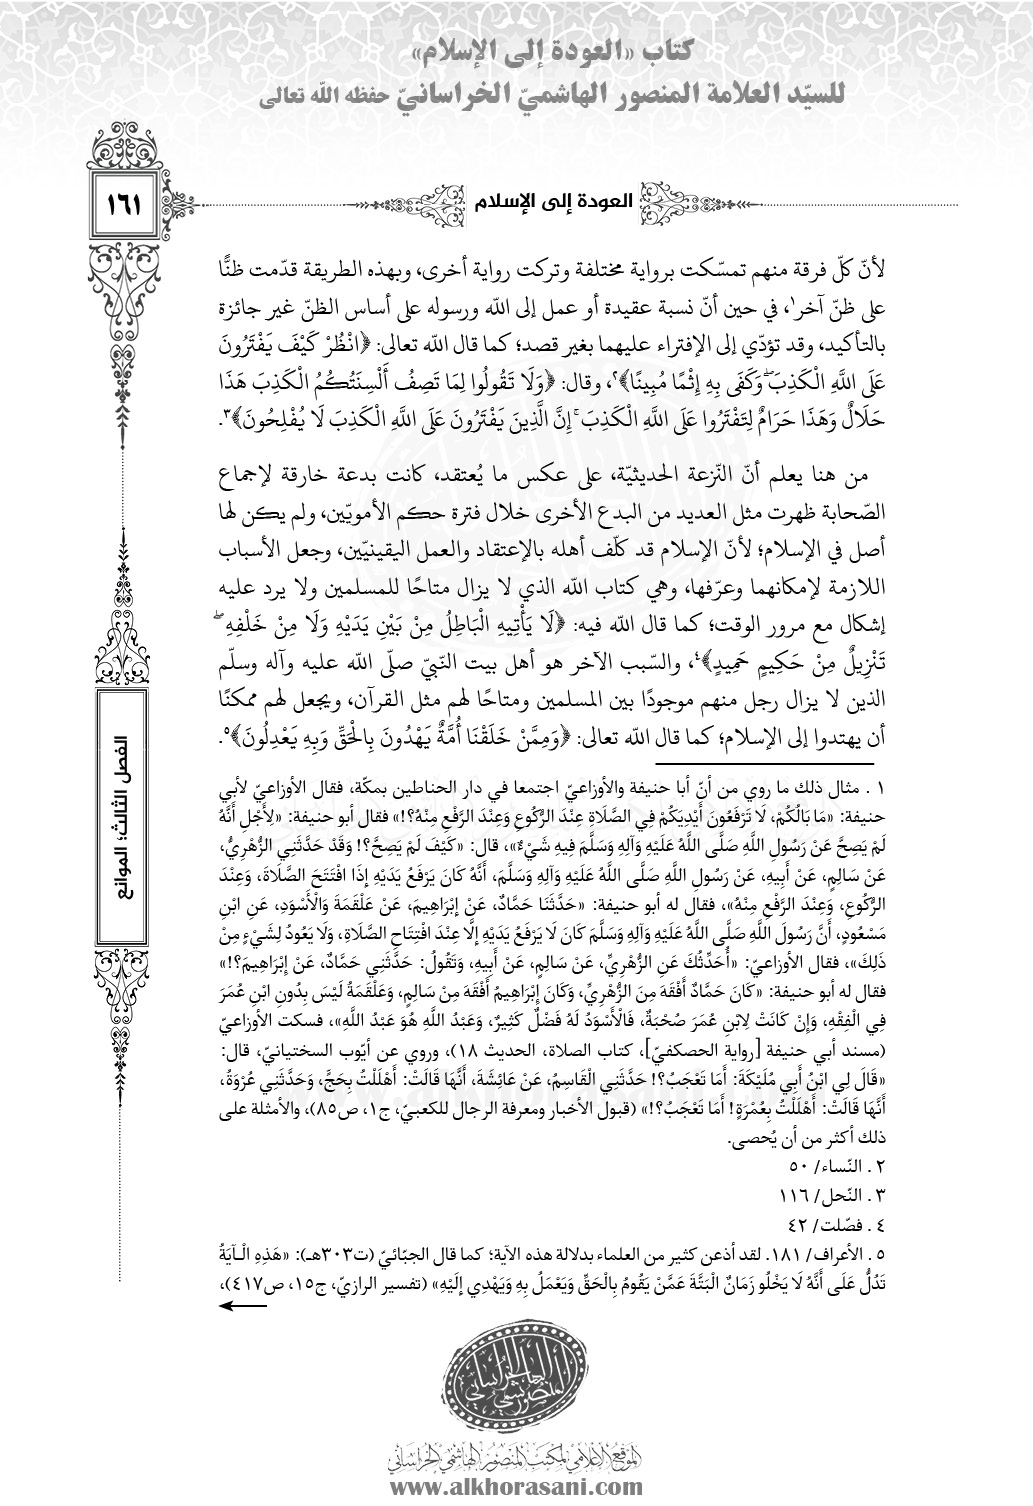 كتاب «العودة إلى الإسلام»
للسيّد العلامة المنصور الهاشميّ الخراسانيّ حفظه الله تعالى
١٦١
العودة إلى الإسلام
لأنّ كلّ فرقة منهم تمسّكت برواية مختلفة وتركت رواية أخرى، وبهذه الطريقة قدّمت ظنًّا
على ظنّ آخر١، في حين أنّ نسبة عقيدة أو عمل إلى الله ورسوله على أساس الظنّ غير جائزة
بالتأكيد، وقد تؤدّي إلى الإفتراء عليهما بغير قصد؛ كما قال الله تعالى: ﴿انْظُرْ كَيْفَ يَفْتَرُونَ
عَلَى اللَّهِ الْكَذِبَ ۖ وَكَفَى بِهِ إِثْمًا مُبِينًا﴾٢، وقال: ﴿وَلَا تَقُولُوا لِمَا تَصِفُ أَلْسِنَتُكُمُ الْكَذِبَ هَذَا
حَلَالٌ وَهَذَا حَرَامٌ لِتَفْتَرُوا عَلَى اللَّهِ الْكَذِبَ ۚ إِنَّ الَّذِينَ يَفْتَرُونَ عَلَى اللَّهِ الْكَذِبَ لَا يُفْلِحُونَ﴾٣.
من هنا يعلم أنّ النّزعة الحديثيّة، على عكس ما يُعتقد، كانت بدعة خارقة لإجماع
الصّحابة ظهرت مثل العديد من البدع الأخرى خلال فترة حكم الأمويّين، ولم يكن لها
أصل في الإسلام؛ لأنّ الإسلام قد كلّف أهله بالإعتقاد والعمل اليقينيّين، وجعل الأسباب
اللازمة لإمكانهما وعرّفها، وهي كتاب الله الذي لا يزال متاحًا للمسلمين ولا يرد عليه
إشكال مع مرور الوقت؛ كما قال الله فيه: ﴿لَا يَأْتِيهِ الْبَاطِلُ مِنْ بَيْنِ يَدَيْهِ وَلَا مِنْ خَلْفِهِ ۖ
تَنْزِيلٌ مِنْ حَكِيمٍ حَمِيدٍ﴾٤، والسّبب الآخر هو أهل بيت النّبيّ صلّى الله عليه وآله وسلّم
الذين لا يزال رجل منهم موجودًا بين المسلمين ومتاحًا لهم مثل القرآن، ويجعل لهم ممكنًا
أن يهتدوا إلى الإسلام؛ كما قال الله تعالى: ﴿وَمِمَّنْ خَلَقْنَا أُمَّةٌ يَهْدُونَ بِالْحَقِّ وَبِهِ يَعْدِلُونَ﴾٥.
الفصل الثالث؛ الموانع
١ . مثال ذلك ما روي من أنّ أبا حنيفة والأوزاعيّ اجتمعا في دار الحناطين بمكّة، فقال الأوزاعيّ لأبي
حنيفة: «مَا بَالُكُمْ، لَا تَرْفَعُونَ أَيْدِيَكُمْ فِي الصَّلَاةِ عِنْدَ الرُّكُوعِ وَعِنْدَ الرَّفْعِ مِنْهُ؟!» فقال أبو حنيفة: «لِأَجْلِ أَنَّهُ
لَمْ يَصِحَّ عَنْ رَسُولِ اللَّهِ صَلَّى اللَّهُ عَلَيْهِ وَآلِهِ وَسَلَّمَ فِيهِ شَيْءٌ»، قال: «كَيْفَ لَمْ يَصِحَّ؟! وَقَدْ حَدَّثَنِي الزُّهْرِيُّ،
عَنْ سَالِمٍ، عَنْ أَبِيهِ، عَنْ رَسُولِ اللَّهِ صَلَّى اللَّهُ عَلَيْهِ وَآلِهِ وَسَلَّمَ، أَنَّهُ كَانَ يَرْفَعُ يَدَيْهِ إِذَا افْتَتَحَ الصَّلَاةَ، وَعِنْدَ
الرُّكُوعِ، وَعِنْدَ الرَّفْعِ مِنْهُ»، فقال له أبو حنيفة: «حَدَّثَنَا حَمَّادٌ، عَنْ إِبْرَاهِيمَ، عَنْ عَلْقَمَةَ وَالْأَسْوَدِ، عَنِ ابْنِ
مَسْعُودٍ، أَنَّ رَسُولَ اللَّهِ صَلَّى اللَّهُ عَلَيْهِ وَآلِهِ وَسَلَّمَ كَانَ لَا يَرْفَعُ يَدَيْهِ إِلَّا عِنْدَ افْتِتَاحِ الصَّلَاةِ، وَلَا يَعُودُ لِشَيْءٍ مِنْ
ذَلِكَ»، فقال الأوزاعيّ: «أُحَدِّثُكَ عَنِ الزُّهْرِيِّ، عَنْ سَالِمٍ، عَنْ أَبِيهِ، وَتَقُولُ: حَدَّثَنِي حَمَّادٌ، عَنْ إِبْرَاهِيمَ؟!»
فقال له أبو حنيفة: «كَانَ حَمَّادٌ أَفْقَهَ مِنَ الزُّهْرِيِّ، وَكَانَ إِبْرَاهِيمُ أَفْقَهَ مِنْ سَالِمٍ، وَعَلْقَمَةُ لَيْسَ بِدُونِ ابْنِ عُمَرَ
فِي الْفِقْهِ، وَإِنْ كَانَتْ لِابْنِ عُمَرَ صُحْبَةٌ، فَالْأَسْوَدُ لَهُ فَضْلٌ كَثِيرٌ، وَعَبْدُ اللَّهِ هُوَ عَبْدُ اللَّهِ»، فسكت الأوزاعيّ
(مسند أبي حنيفة [رواية الحصكفيّ]، كتاب الصلاة، الحديث ١٨)، وروي عن أيّوب السختيانيّ، قال:
«قَالَ لِي ابْنُ أَبِي مُلَيْكَةَ: أَمَا تَعْجَبُ؟! حَدَّثَنِي الْقَاسِمُ، عَنْ عَائِشَةَ، أَنَّهَا قَالَتْ: أَهْلَلْتُ بِحَجٍّ، وَحَدَّثَنِي عُرْوَةُ،
أَنَّهَا قَالَتْ: أَهْلَلْتُ بِعُمْرَةٍ! أَمَا تَعْجَبُ؟!» (قبول الأخبار ومعرفة الرجال للكعبيّ، ج١، ص٨٥)، والأمثلة على
ذلك أكثر من أن يُحصى.
٢ . النّساء/ ٥٠
٣ . النّحل/ ١١٦
٤ . فصّلت/ ٤٢
٥ . الأعراف/ ١٨١. لقد أذعن كثير من العلماء بدلالة هذه الآية؛ كما قال الجبّائيّ (ت٣٠٣هـ): «هَذِهِ الْـآيَةُ
تَدُلُّ عَلَى أَنَّهُ لَا يَخْلُو زَمَانٌ الْبَتَّةَ عَمَّنْ يَقُومُ بِالْحَقِّ وَيَعْمَلُ بِهِ وَيَهْدِي إِلَيْهِ» (تفسير الرازيّ، ج١٥، ص٤١٧)،
المنصور الهاشمي الخراساني
الموقع الإعلامي لمكتب المنصور الهاشمي الخراساني
www.alkhorasani.com